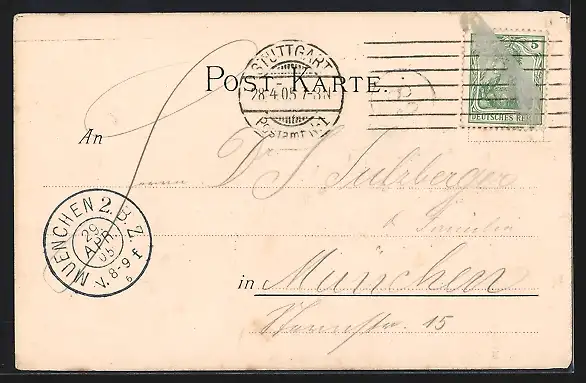 STUTTGART
28.4.05 7-8N
Postamt N°1
POST-KARTE.
5
DEUTSCHES REICH
An
Herrn Dr. S. Sulzberger
& Familie
in München
15
MUENCHEN 2. B.Z.
29
APR.
05
V. 8-9 f